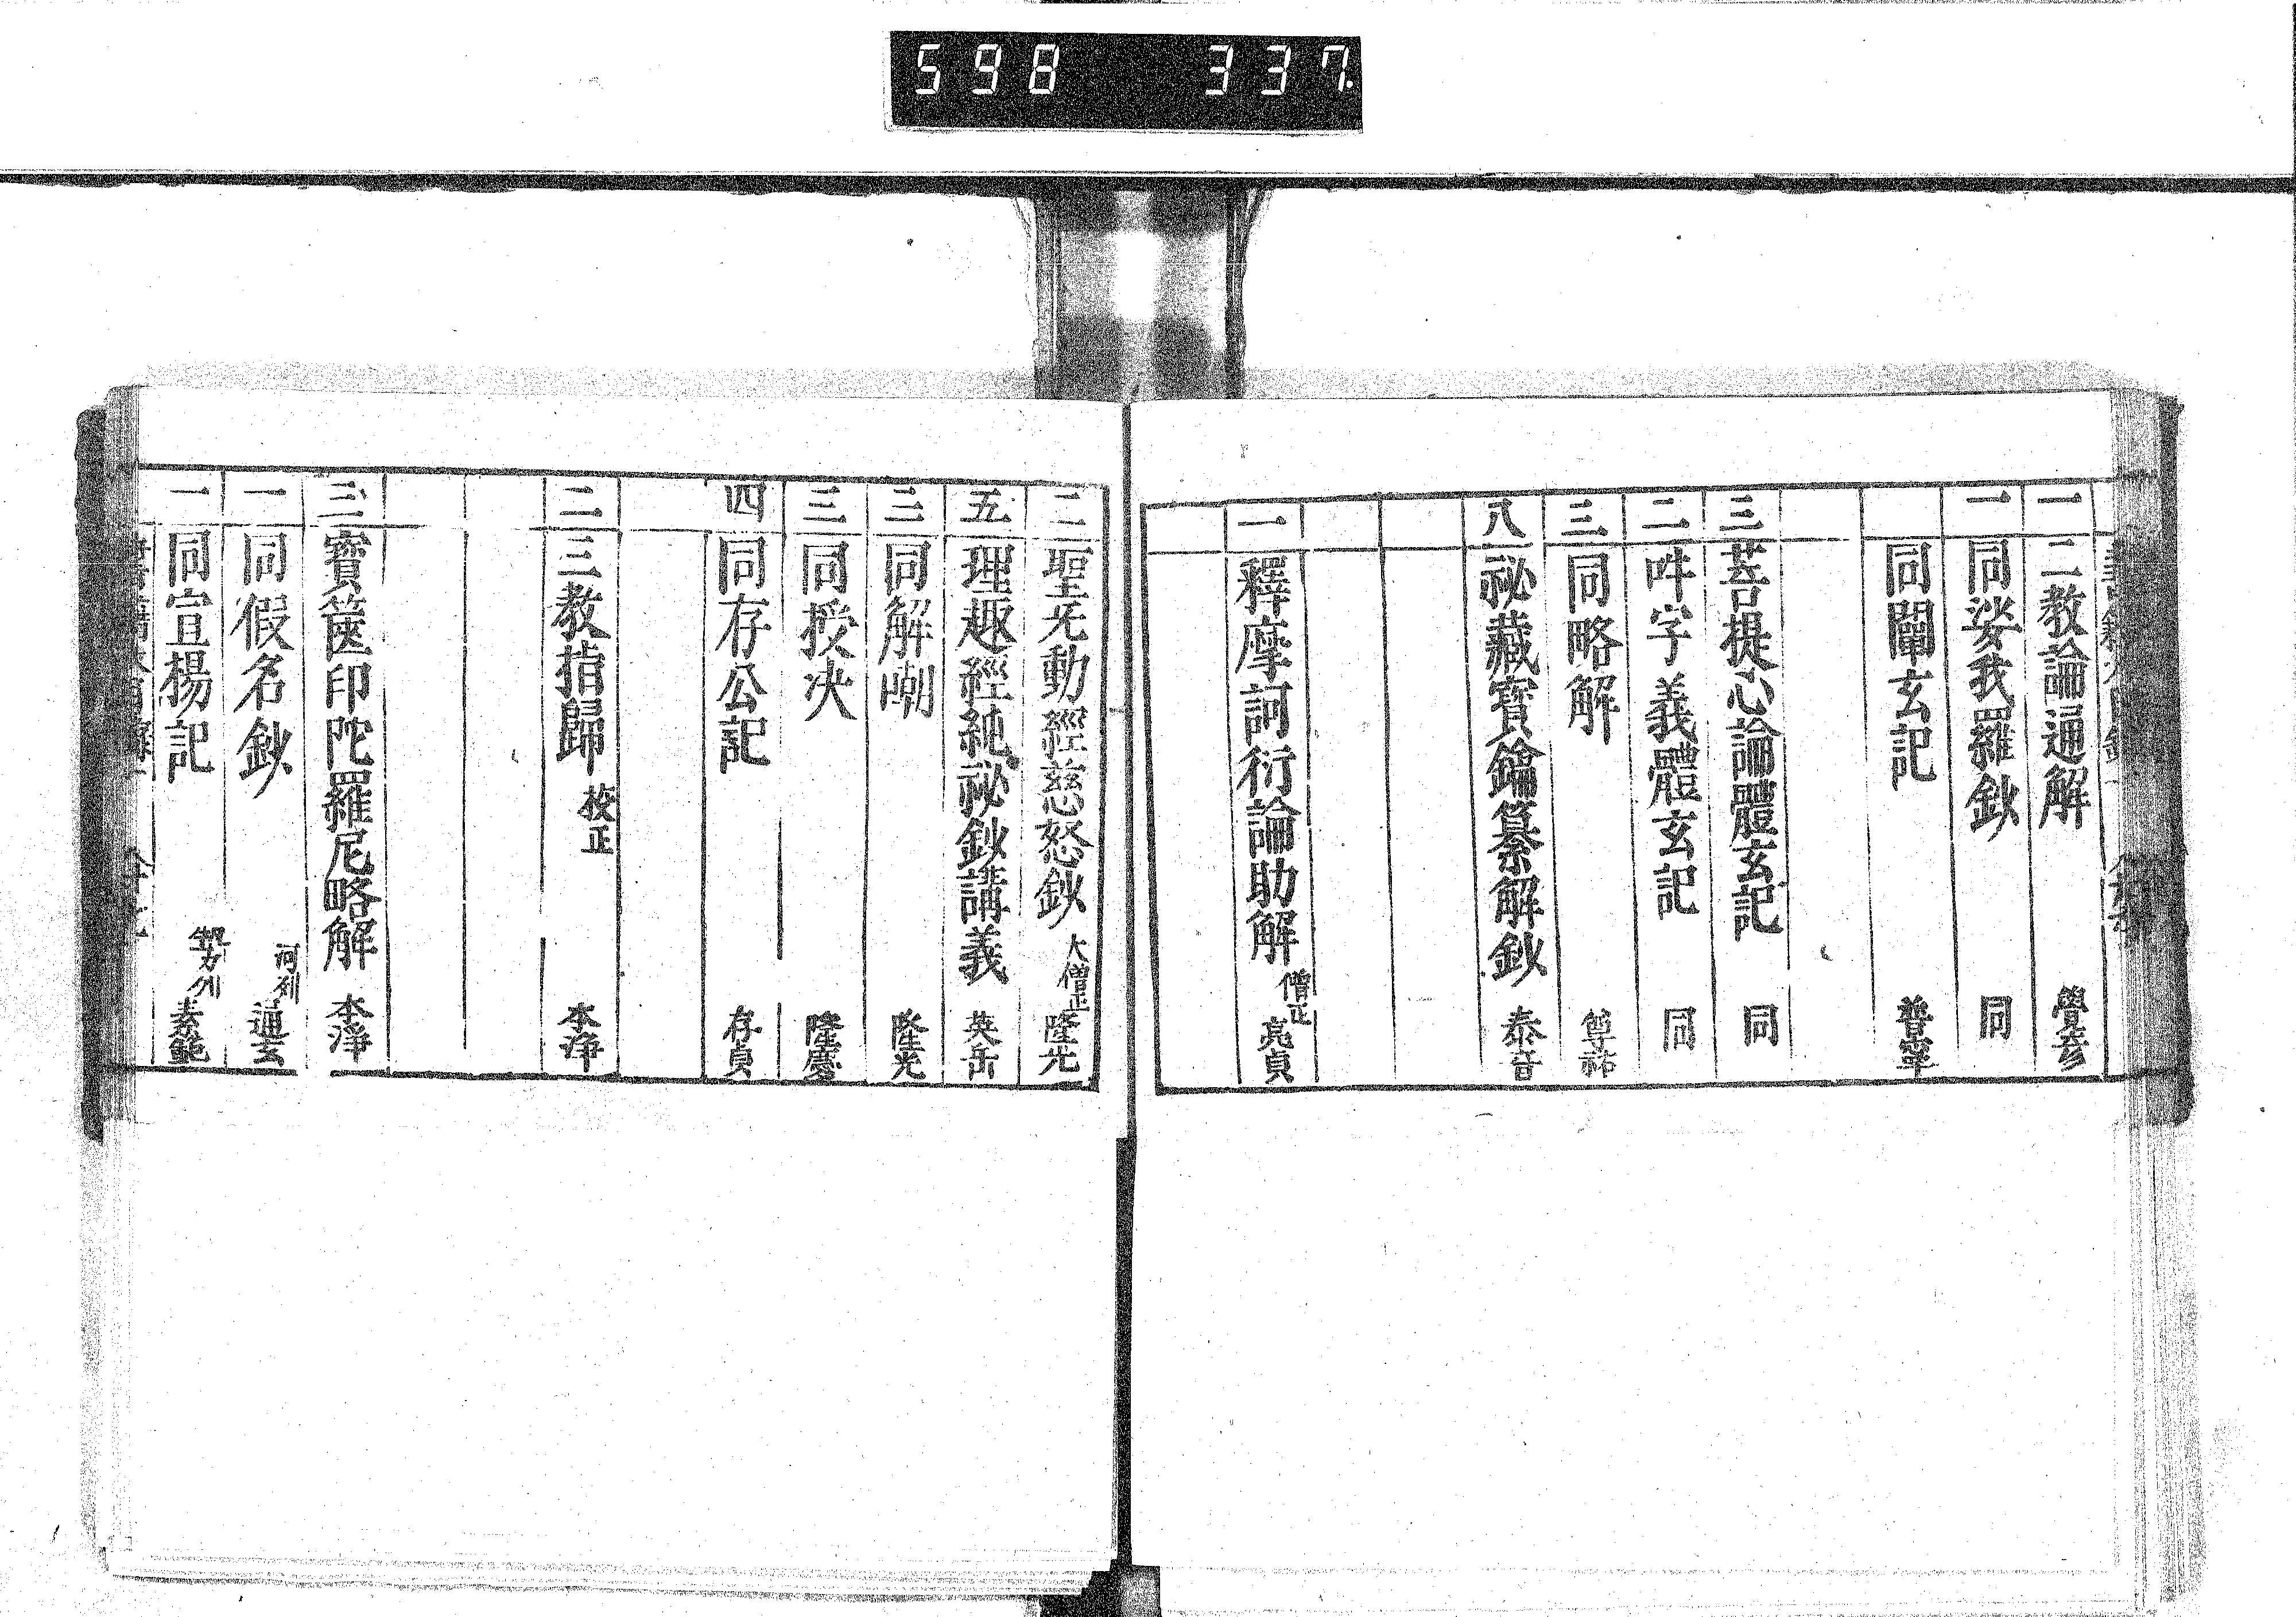 598 337.
一 二教論通解 覺彥
一 同娑我羅鈔 同
同闡玄記 普寧
三 菩提心論體玄記 同
二 吽字義體玄記 同
三 同略解 尊祐
八 祕藏寶鑰纂解鈔 泰音
一 釋摩訶衍論助解 僧正 亮貞
二 聖无動經慈怒鈔 大僧正 隆光
五 理趣經純祕鈔講義 英岳
三 同解嘲 隆光
三 同授决 隆慶
四 同存公記 存貞
二 三教指歸 校正 本淨
三 寶篋印陀羅尼略解 本淨
一 同假名鈔 河列 通玄
一 同宣揚記